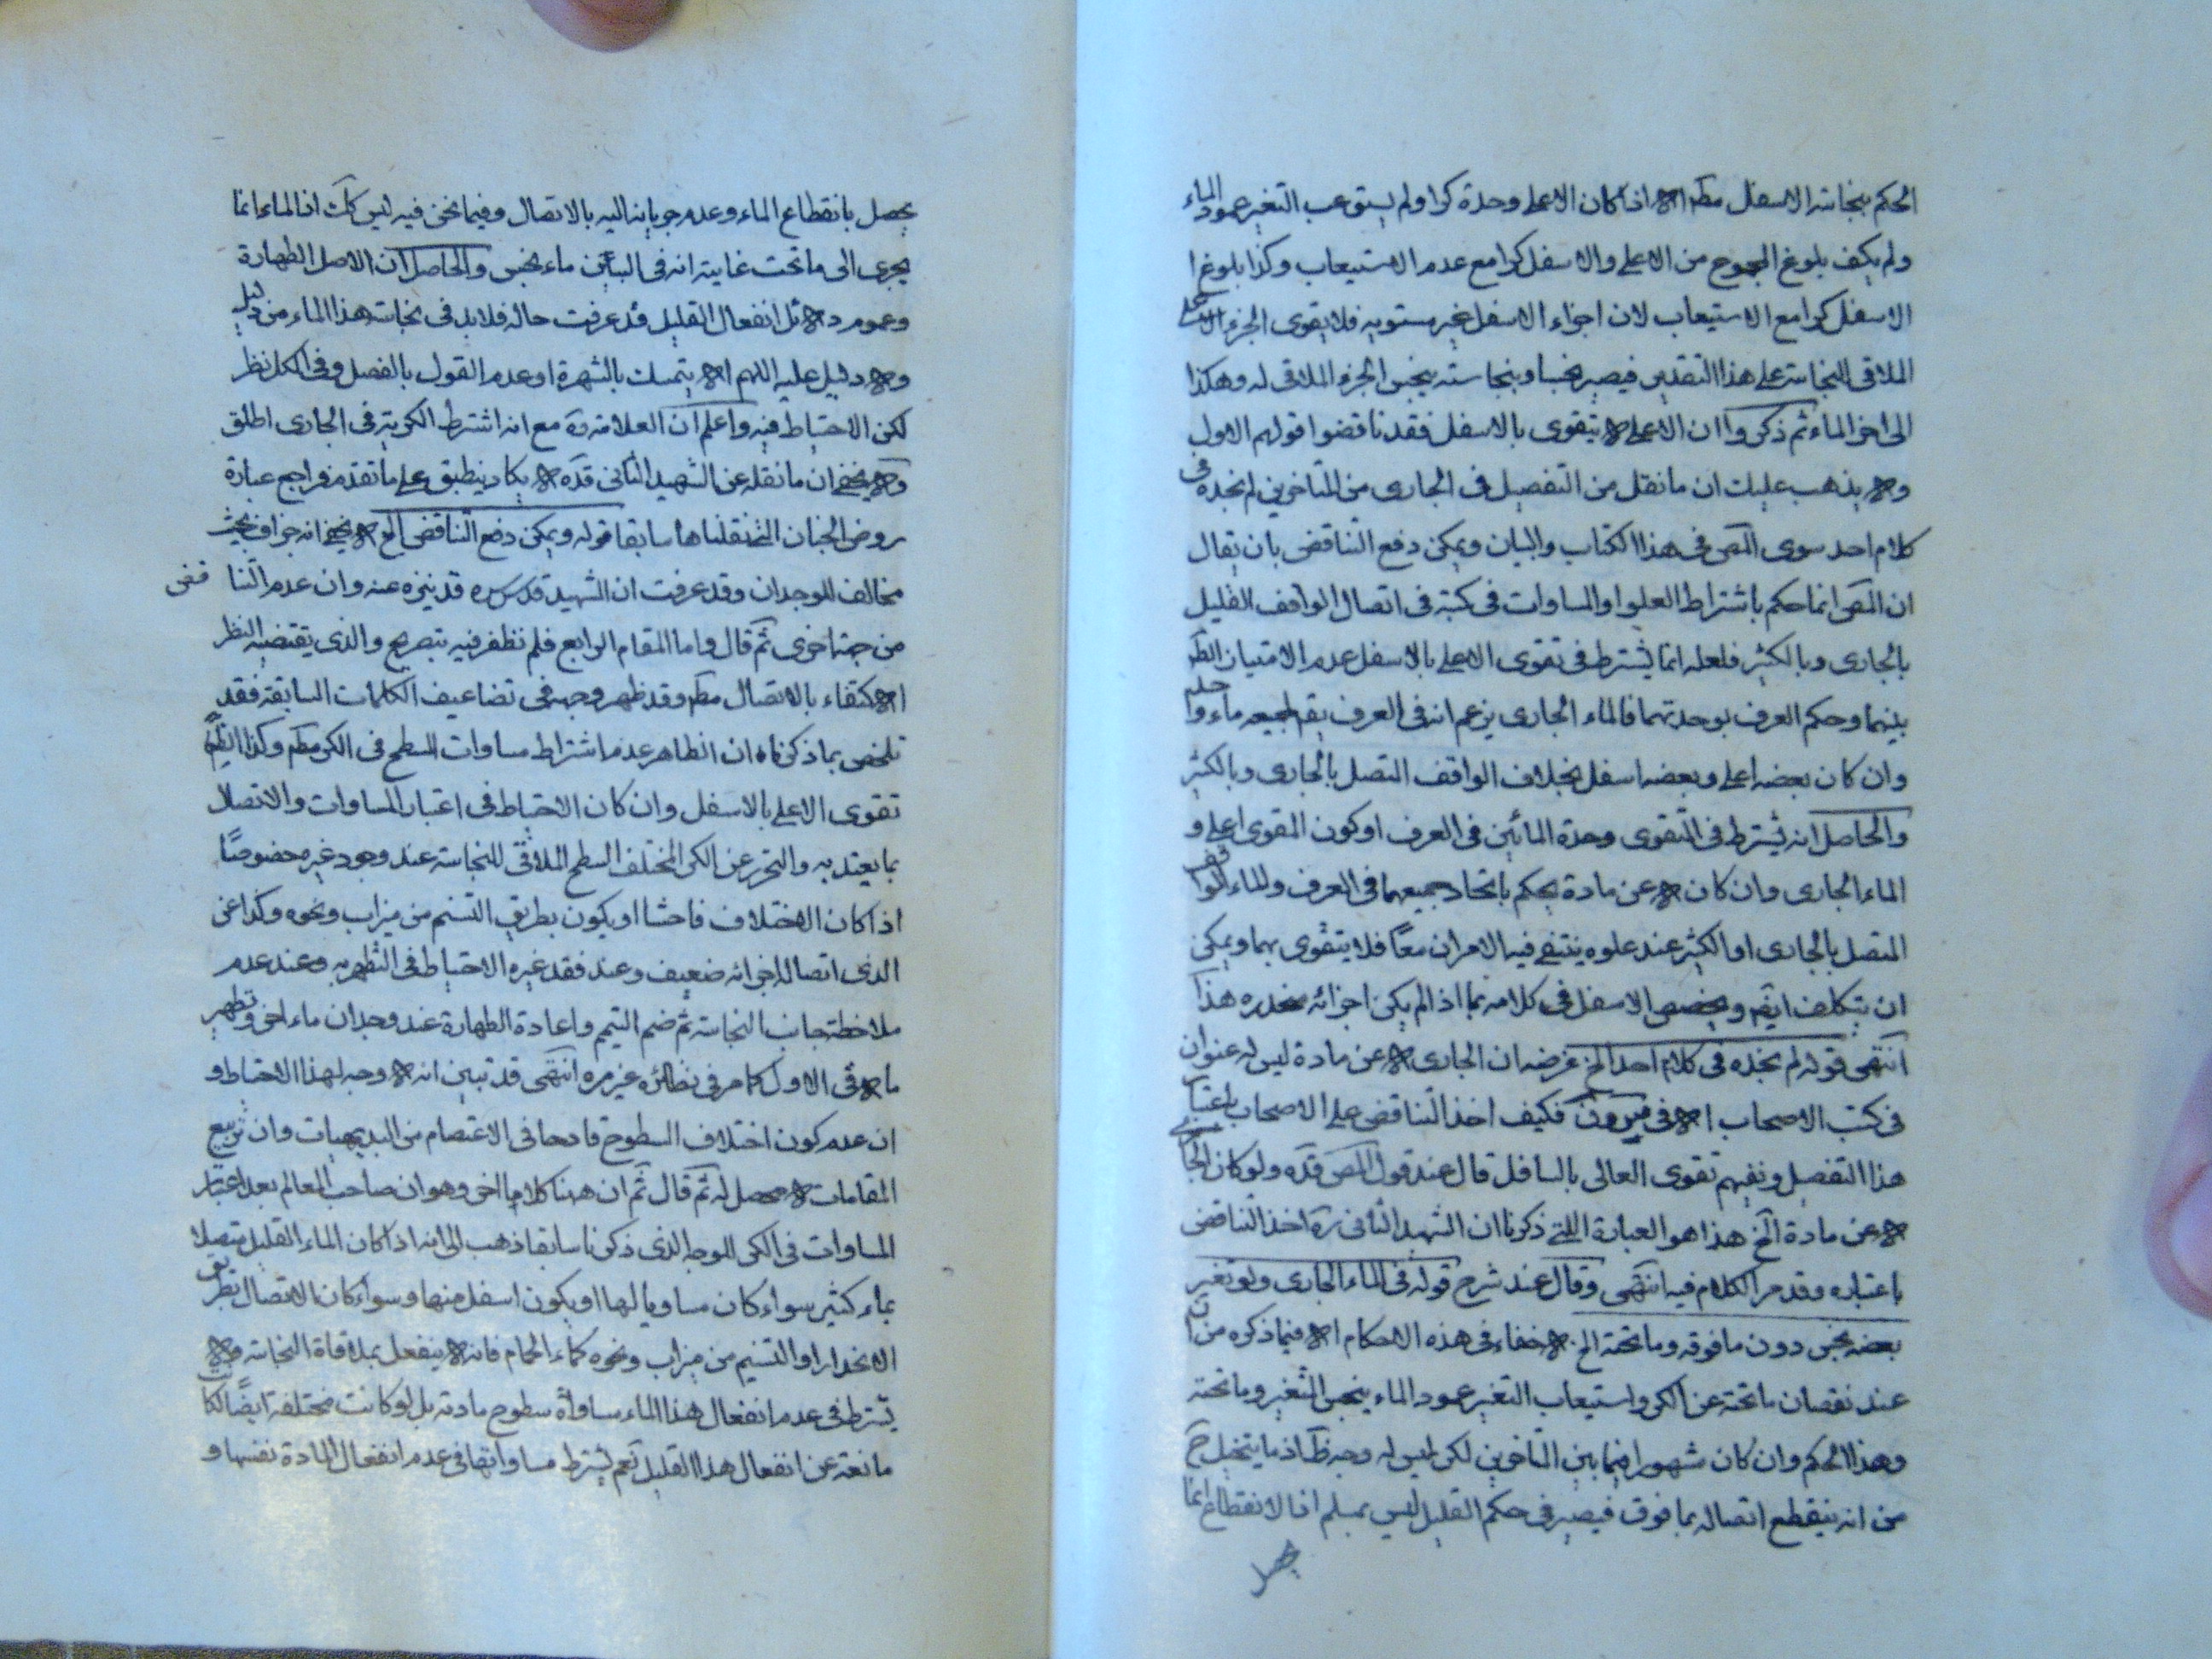 الحكم بنجاسة الاسفل مطم الا اذا كان الاعلى وحدة كرا ولم يستوعب التغير عمود الماء
ولم يكف بلوغ المجموع من الاعلى والاسفل كرا مع عدم الاستيعاب وكذا بلوغ
الاسفل كرا مع الاستيعاب لان اجزاء الاسفل غير مستويه فلا يقوى الجزء الاعلى
الملاقى للنجاسة على هذا التقدير فيصير نجسا وبنجاسته ينجس الجزء الملاقى له وهكذا
الى اخر الماء ثم ذكروا ان الاعلى لا يتقوى بالاسفل فقد ناقضوا قولهم الاول
ولا يذهب عليك ان ما نقل من التفصيل فى الجارى من المتاخرين لم نجده فى
كلام احد سوى المص فى هذا الكتاب والبيان ويمكن دفع التناقض بان يقال
ان المص انما حكم باشتراط العلو او المساوات فى كتبه فى اتصال الواقف القليل
بالجارى وبالكثير فلعله انما يشترط فى تقوى الاعلى بالاسفل عدم الامتياز الظ
بينهما وحكم العرف بوحدتهما فالماء الجارى يزعم انه فى العرف يقم لجميعه ماء واحد
وان كان بعضه اعلى وبعضه اسفل بخلاف الواقف المتصل بالجارى وبالكثير
والحاصل انه يشترط فى التقوى وحدة المائين فى العرف او كون المقوى اعلى و
الماء الجارى وان كان لا عن مادة يحكم باتحاد جميعهما فى العرف والماء الواقف
المتصل بالجارى او الكثير عند علوه ينتفى فيه الامران معًا فلا يتقوى بهما ويمكن
ان يتكلف ايقم ويخصص الاسفل فى كلامه بما اذا لم يكن اجزائه منحدره هذا
انتهى قوله لم نجده فى كلام احد الخ غرضه ان الجارى لا عن مادة ليس له عنوان
فى كتب الاصحاب الا فى فكيف اخذ التناقض على الاصحاب باعتبار
هذا التفصيل ونفيهم تقوى العالى بالسافل قال عند قول المص قده ولو كان الجارى
لا عن مادة الخ هذا هو العبارة اللتى ذكرنا ان الشهيد الثانى ره اخذ التناقض
باعتباره وقد مر الكلام فيه انتهى وقال عند شرح قوله فى الماء الجارى ولو تغير
بعضه نجس دون ما فوقه وما تحته الخ لا خفاء فى هذه الاحكام الا فيما ذكره من ان
عند نقصان ما تحته عن الكر واستيعاب التغير عمود الماء ينجس المتغير وما تحته
وهذا الحكم وان كان مشهورا فيما بين المتاخرين لكن ليس له وجه ظ اذ ما يتخيل ح
من انه ينقطع اتصاله بما فوق فيصير فى حكم القليل ليس بمسلم اذ الانقطاع انما
يحصل
يحصل بانقطاع الماء وعدم جريانه اليه بالاتصال وفيما نحن فيه ليس كك اذ الماء دائما
يجرى الى ما تحت غايته انه فى البين ماء نجس والحاصل ان الاصل الطهارة
وعموم دلائل انفعال القليل قد عرفت حاله فلابد فى نجاسة هذا الماء من دليل
ولا دليل عليه اللهم الا يتمسك بالشهرة او عدم القول بالفصل وفى الكل نظر
لكن الاحتياط فيه واعلم ان العلامة ره مع انه اشترط الكرية فى الجارى اطلق
ولا يخفى ان ما نقله عن الشهيد الثانى قده لا يكاد ينطبق على ما تقدم فراجع عبارة
روض الجنان التى نقلناها سابقا قوله ويمكن دفع التناقض الخ لا يخفى انه جزاف بحت
مخالف للوجدان وقد عرفت ان الشهيد قدس سره قد نيزه عنه وان عدم التنا قض
من جهة اخرى ثم قال واما المقام الرابع فلم نظفر فيه بتصريح والذى يقتضيه النظر
الاكتفاء بالاتصال مطم وقد ظهر وجهه فى تضاعيف الكلمات السابقة فقد
تلخص بما ذكرناه ان الظاهر عدم اشتراط مساوات السطح فى الكر مطم وكذا الظم
تقوى الاعلى بالاسفل وان كان الاحتياط فى اعتبار المساوات والاتصال
بما يعتد به والتحرز عن الكر المختلف السطح الملاقى للنجاسة عند وجود غيره خصوصًا
اذا كان الاختلاف فاحشا او يكون بطريق التسنم من ميزاب ونحوه وكذا عن
الذى اتصال اجزائه ضعيف وعند فقد غيره الاحتياط فى التطهر به وعند عدم
ملاحظة جانب النجاسة ثم ضم التيمم واعادة الطهارة عند وجدان ماء اخر وتطهير
ما لاقى الاول كما مر فى نظائره غير مره انتهى قد تبين انه لا وجه لهذا الاحتياط و
ان عدم كون اختلاف السطوح قادحا فى الاعتصام من البديهيات وان تربيع
المقامات لا محصل له ثم قال ثم ان ههنا كلاما اخر وهو ان صاحب المعالم بعد اعتبار
المساوات فى الكر للوجه الذى ذكرنا سابقا ذهب الى انه اذا كان الماء القليل متصلا
بماء كثير سواء كان مساويا لها او يكون اسفل منها وسواء كان الاتصال بطريق
الانحدار او التسنيم من ميزاب ونحوه كماء الحمام فانه لا ينفعل بملاقاة النجاسة ولا
يشترط فى عدم انفعال هذا الماء مساواة سطوح مادته بل لو كانت مختلفة ايضًا لكانت
مانعة عن انفعال هذا القليل نعم يشترط مساواتها فى عدم انفعال المادة نفسها و